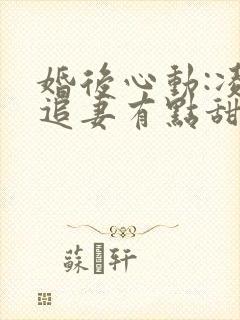 婚後心動:凌
追妻有點甜
蘇軒